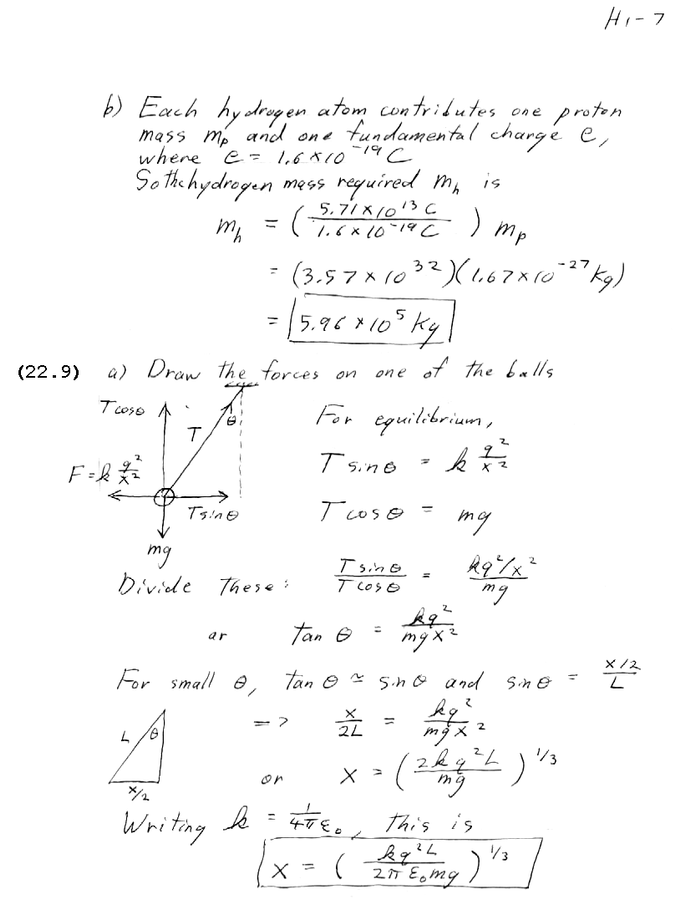 H1-7
b) Each hydrogen atom contributes one proton
mass m_p and one fundamental charge e,
where e = 1.6×10^-19 C
So the hydrogen mass required m_h is
m_h = ( 5.71×10^13 C / 1.6×10^-19 C ) m_p
= (3.57×10^32)(1.67×10^-27 Kg)
= 5.96×10^5 Kg
(22.9) a) Draw the forces on one of the balls
T cosθ
T
θ
For equilibrium,
F = k q²/x²
T sinθ = k q²/x²
T sinθ
T cosθ = mg
mg
Divide these: T sinθ / T cosθ = kq²/x² / mg
or tan θ = kq² / mgx²
For small θ, tan θ ≃ sin θ and sin θ = x/2 / L
L θ
=> x/2L = kq² / mgx²
x/2
or x = ( 2kq²L / mg )^1/3
Writing k = 1/4πε₀, this is
x = ( kq²L / 2πε₀mg )^1/3